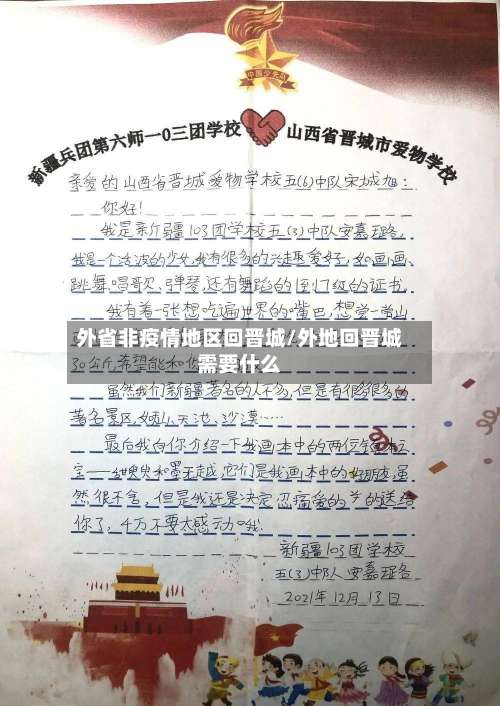 中国少先队
新疆兵团第六师一0三团学校 山西省晋城市爱物学校
亲爱的山西省晋城爱物学校五(6)中队宋城旭：
你好！
我是新疆103团学校五(3)中队安嘉璐，
我是一个活波的少女，我有很多的兴趣爱好，如画画、
跳舞、唱哥欠、弹琴，还有舞蹈的
我有着一张想吃遍世界的嘴巴，想尝一尝山
外省非疫情地区回晋城/外地回晋城
需要什么
30公斤，希望能和你
虽然我们新疆著名的人不多，但是有很多很多的
著名景区，如山、天池、沙漠……
最后我向你介绍一下我画本中的两位
宝——和墨无越，它们是我画本中的好朋友，虽
然很不舍，但是我还是决定忍痛爱的送给
你了，千万不要太感动哦。
新疆103团学校
五(3)中队 安嘉璐
2021年12月13日